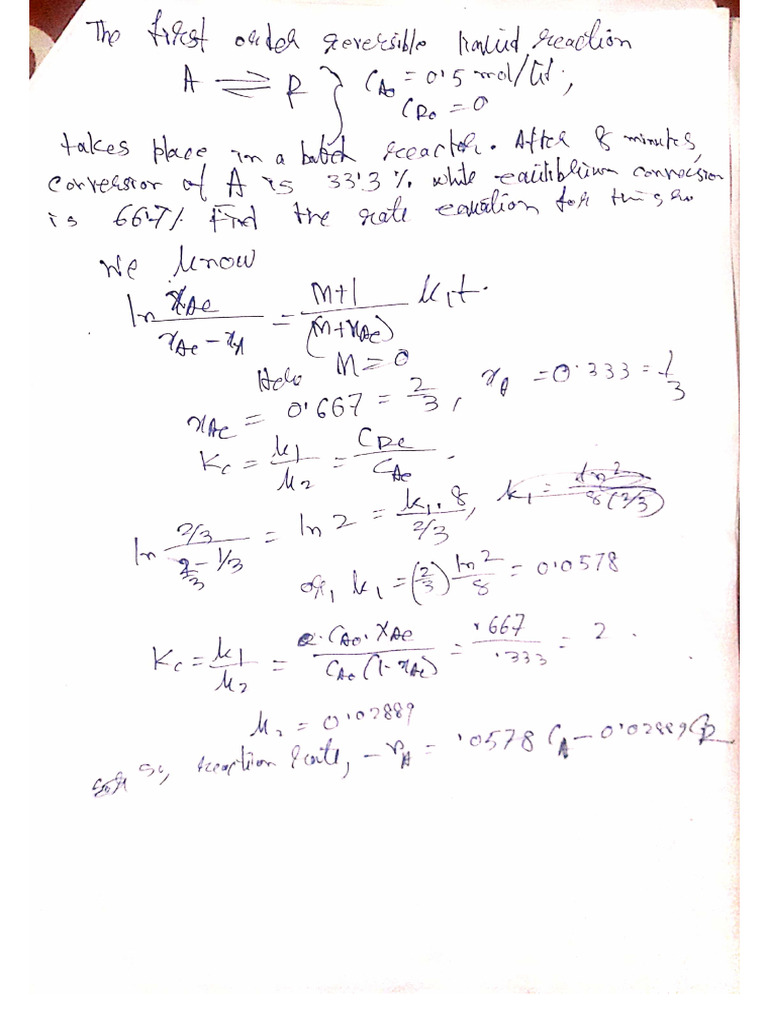 The first order reversible liquid reaction
A ⇌ R } C_A0 = 0.5 mol/lit ;
C_R0 = 0
takes place in a batch reactor. After 8 minutes,
conversion of A is 33.3 % while equilibrium conversion
is 66.7% Find the rate equation for this
We know
ln x_Ae / (x_Ae - x_A) = (M+1) / (M+x_Ae) k_1 t.
Here M = 0
x_Ae = 0.667 = 2/3, x_A = 0.333 = 1/3
K_c = k_1/k_2 = C_Re/C_Ae .
ln (2/3) / (2/3 - 1/3) = ln 2 = k_1.8 / (2/3),
or, k_1 = (2/3) ln2/8 = 0.0578
K_c = k_1/k_2 = C_A0.x_Ae / C_A0(1-x_Ae) = .667/.333 = 2 .
k_2 = 0.02889
So, reaction rate, -r_A = .0578 C_A - 0.02889 C_R